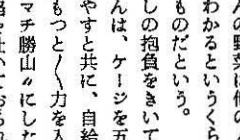 んの野菜に他の
わかるというくら
ものだという。
しの抱負をきいて
んは、ケージを五
やすと共に、自給
もつと〳〵力を入
マチ勝山〃にした